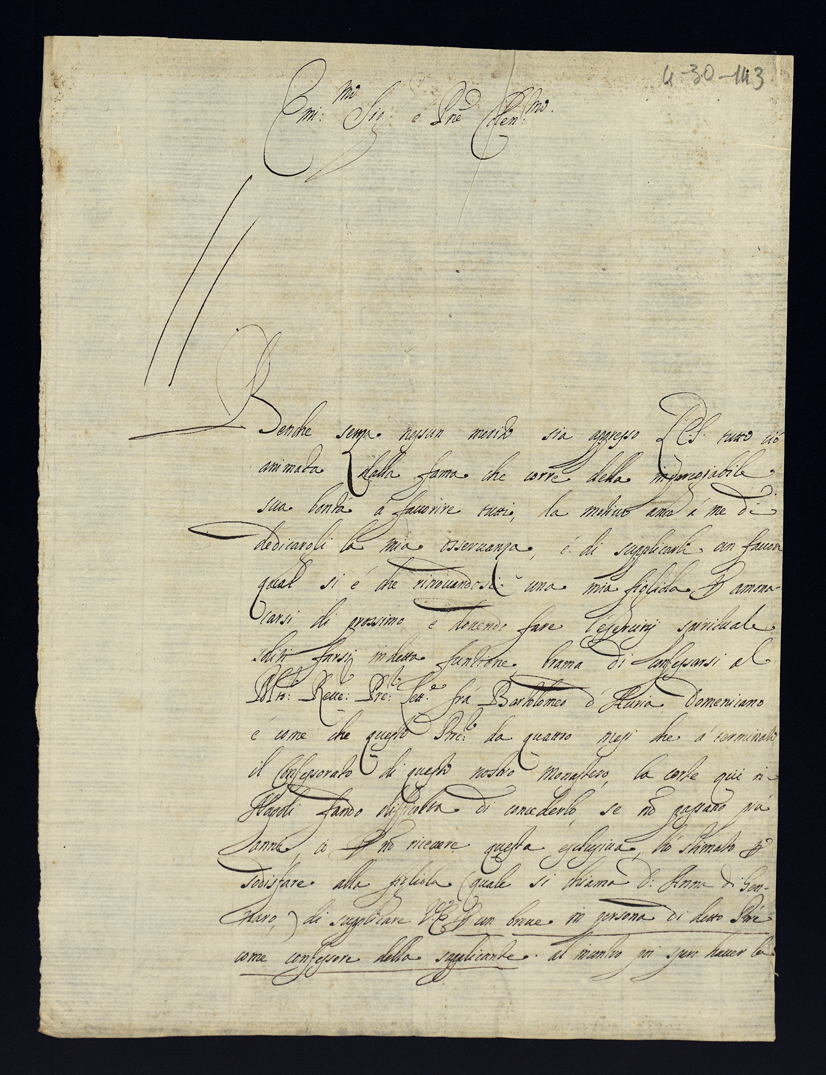 4-30-143
Emi:mo Sig.r e Pne Colen:mo
Benche senza nessun merito sia appresso tutto ciò
animata dalla fama che corre della inpareggiabile
sua bontà à favorire tutti, la motivo à me di
dedicargli la mia osservanza, é di supplicarli un favor
qual si é che ritrovandosi una mia figliola p monacarsi
di prossimo e dovendo fare l'esercitij spirituale
soliti farsi in detta funtione brama di confessarsi al
Molto: Reve: Pre: Lett.e frà Bartholomeo d'Auria Domenicano
é come che questo Pre: da quattro mesi che á terminato
il Confessorato di questo nostro Monastero, la corte qui in
Napoli fando difficoltà di concederlo, se nõ passano più
anni, à nõ ricevere questa esclusiva, hò stimato p
sodisfare alla figliola (quale si chiama D: Anna di Gennaro,)
di supplicare V.E. p un breve in persona di detto Pre
come confessore della supplicante. al mentre poi spero haver la